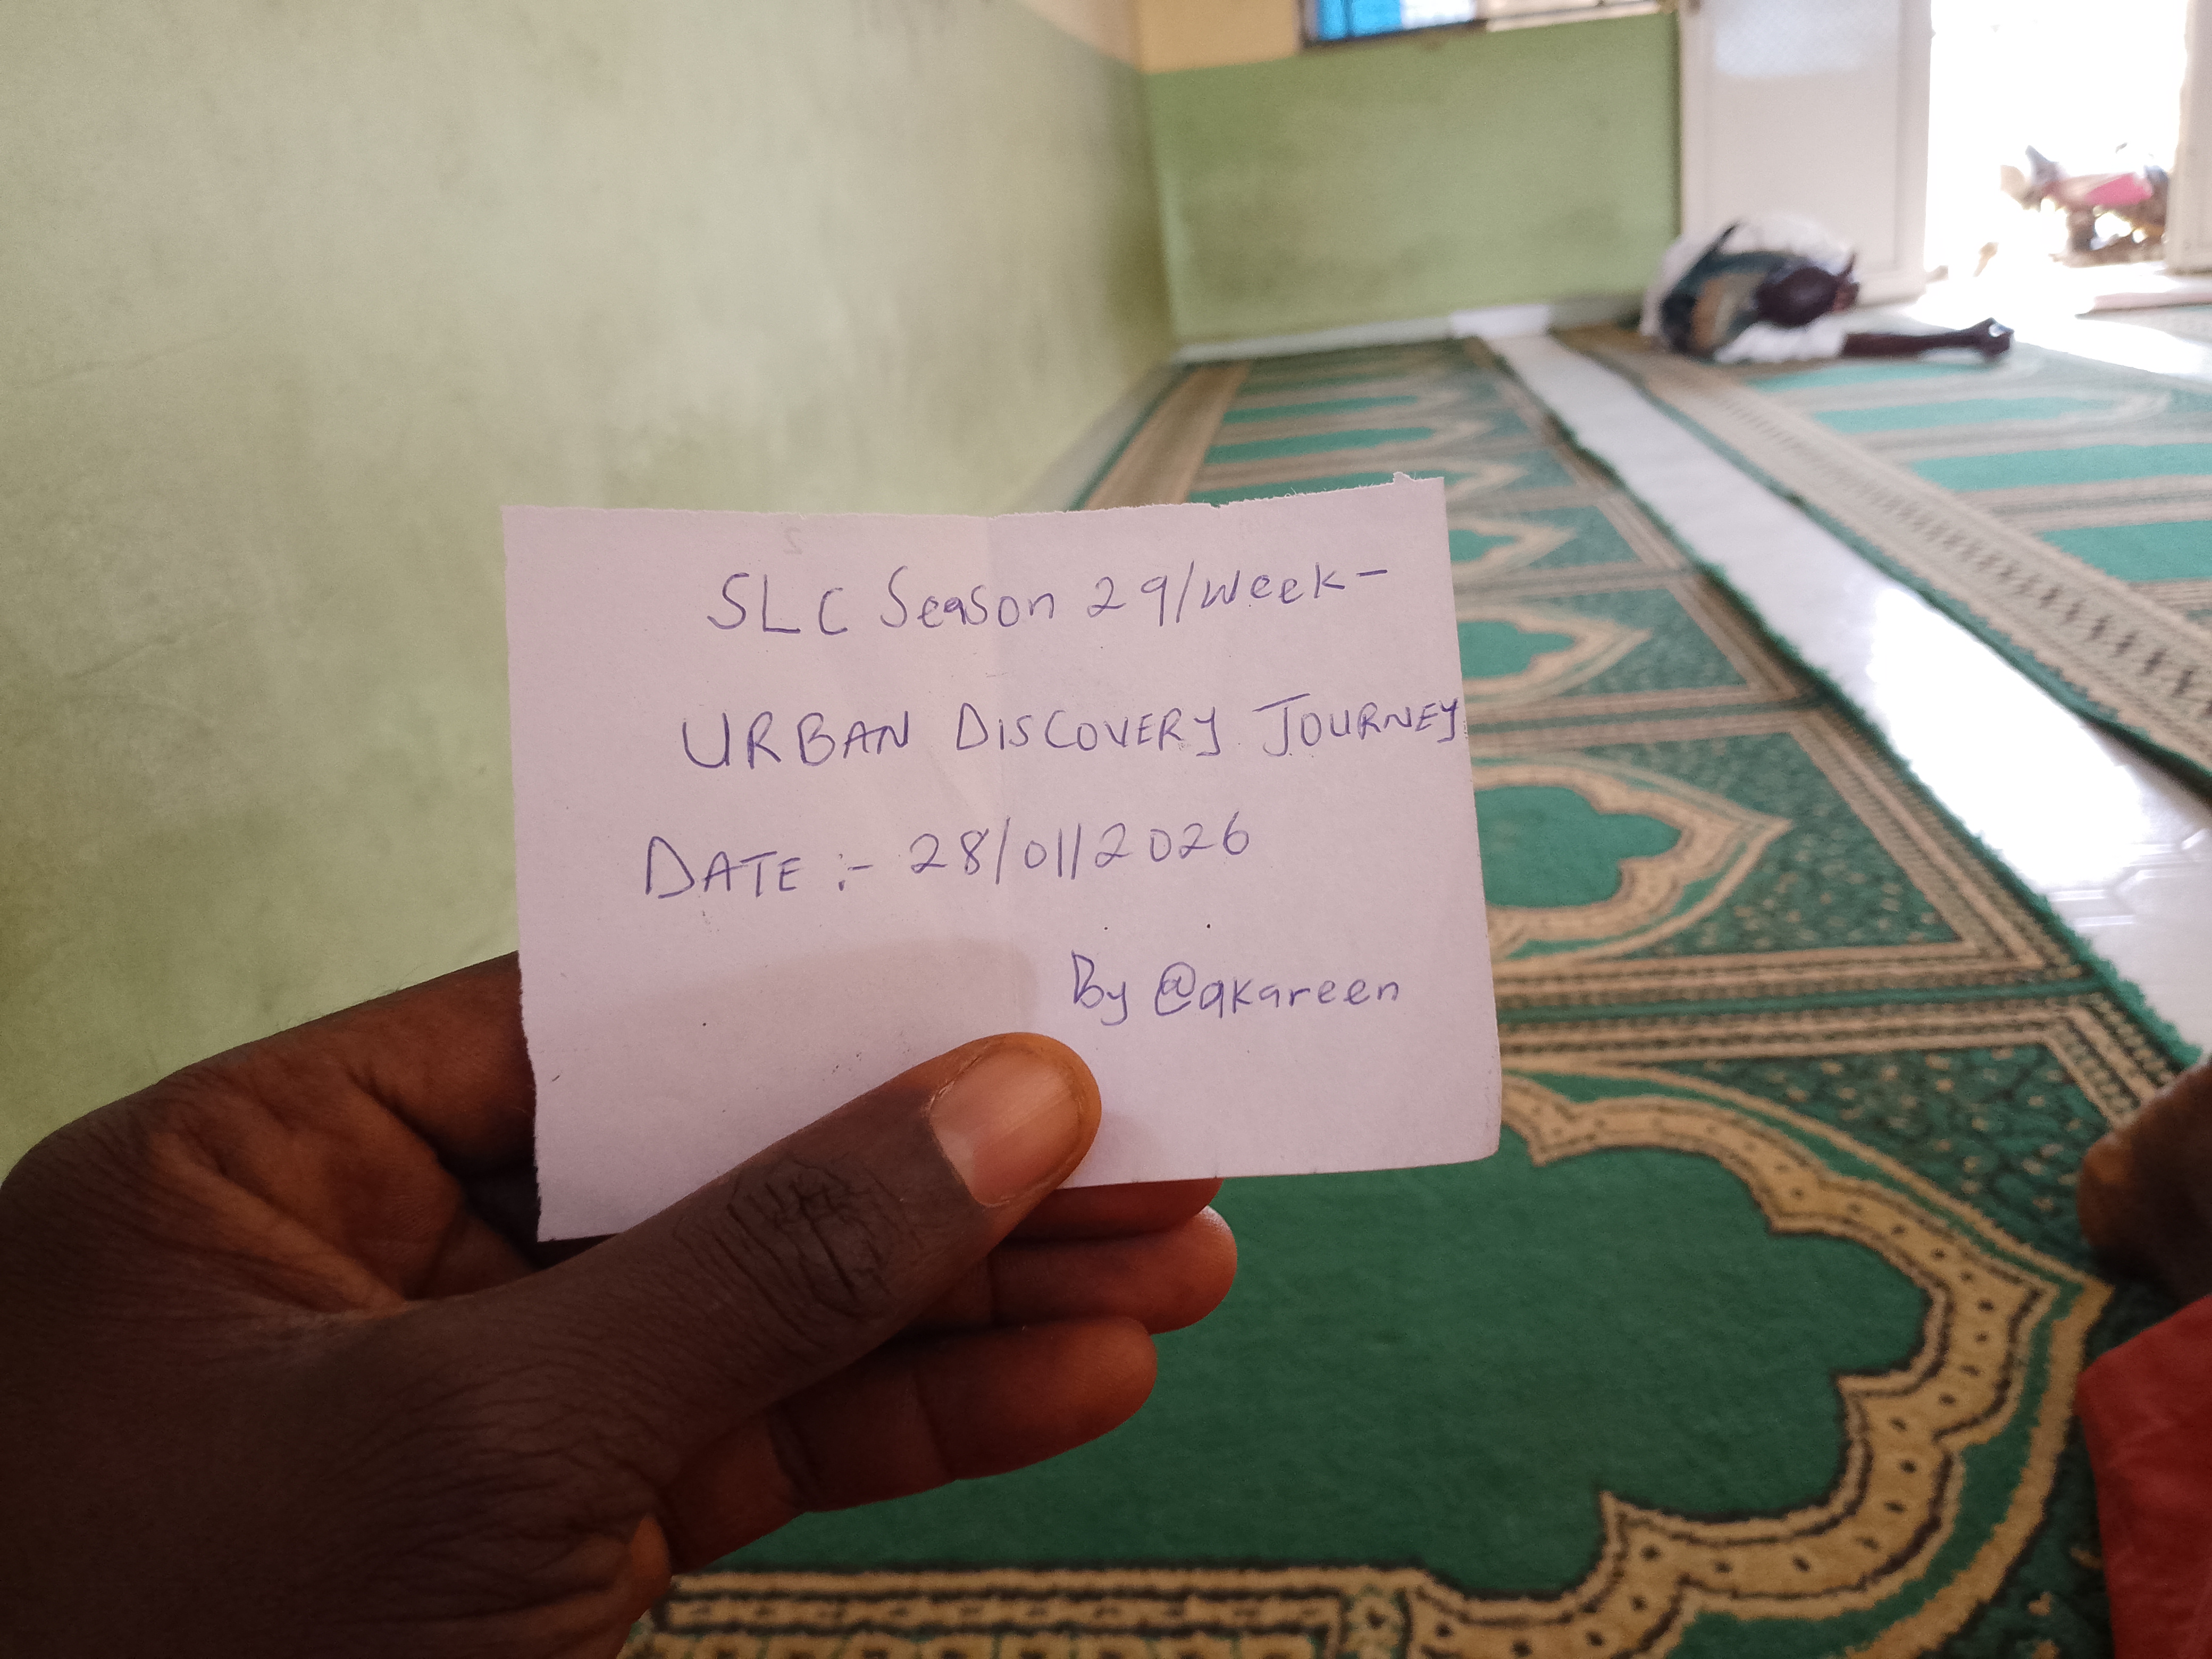 SLC Season 29/week-
URBAN DISCOVERY JOURNEY
DATE :- 28/01/2026
By @akareen